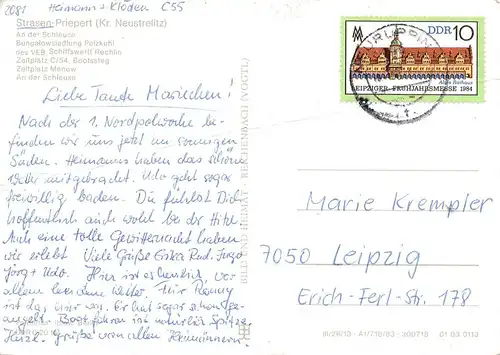 2081 Heimann + Kloden C55
Strasen-Priepert (Kr. Neustrelitz)
An der Schleuse
Bungalowsiedlung Pelzkuhl
des VEB Schiffswerft Rechlin
Zeltplatz C/54, Bootssteg
Zeltplatz Menow
An der Schleuse
Liebe Tante Mariechen!
Nach der 1. Nordpolwoche be-
finden wir uns jetzt im sonnigen
Süden. Heimanns haben das schöne
Wetter mitgebracht. Udo geht sogar
freiwillig baden. Du fühlst Dich
hoffentlich auch wohl bei der Hitze.
Auch eine tolle Gewitternacht haben
wir erlebt. Viele Grüße Erika Rud. Ingo
Jörg + Udo. Hier ist es herrlich, vor
allem bei dem Wetter.
ist da,
Boot fahren ist natürlich Spitze
Grüße von allen
BILD UND HEIMAT REICHENBACH (VOGTL)
DDR 10
Altes Rathaus
LEIPZIGER FRÜHJAHRSMESSE 1984
Marie Krempler
7050 Leipzig
Erich-Ferl-Str. 178
01 03 0113